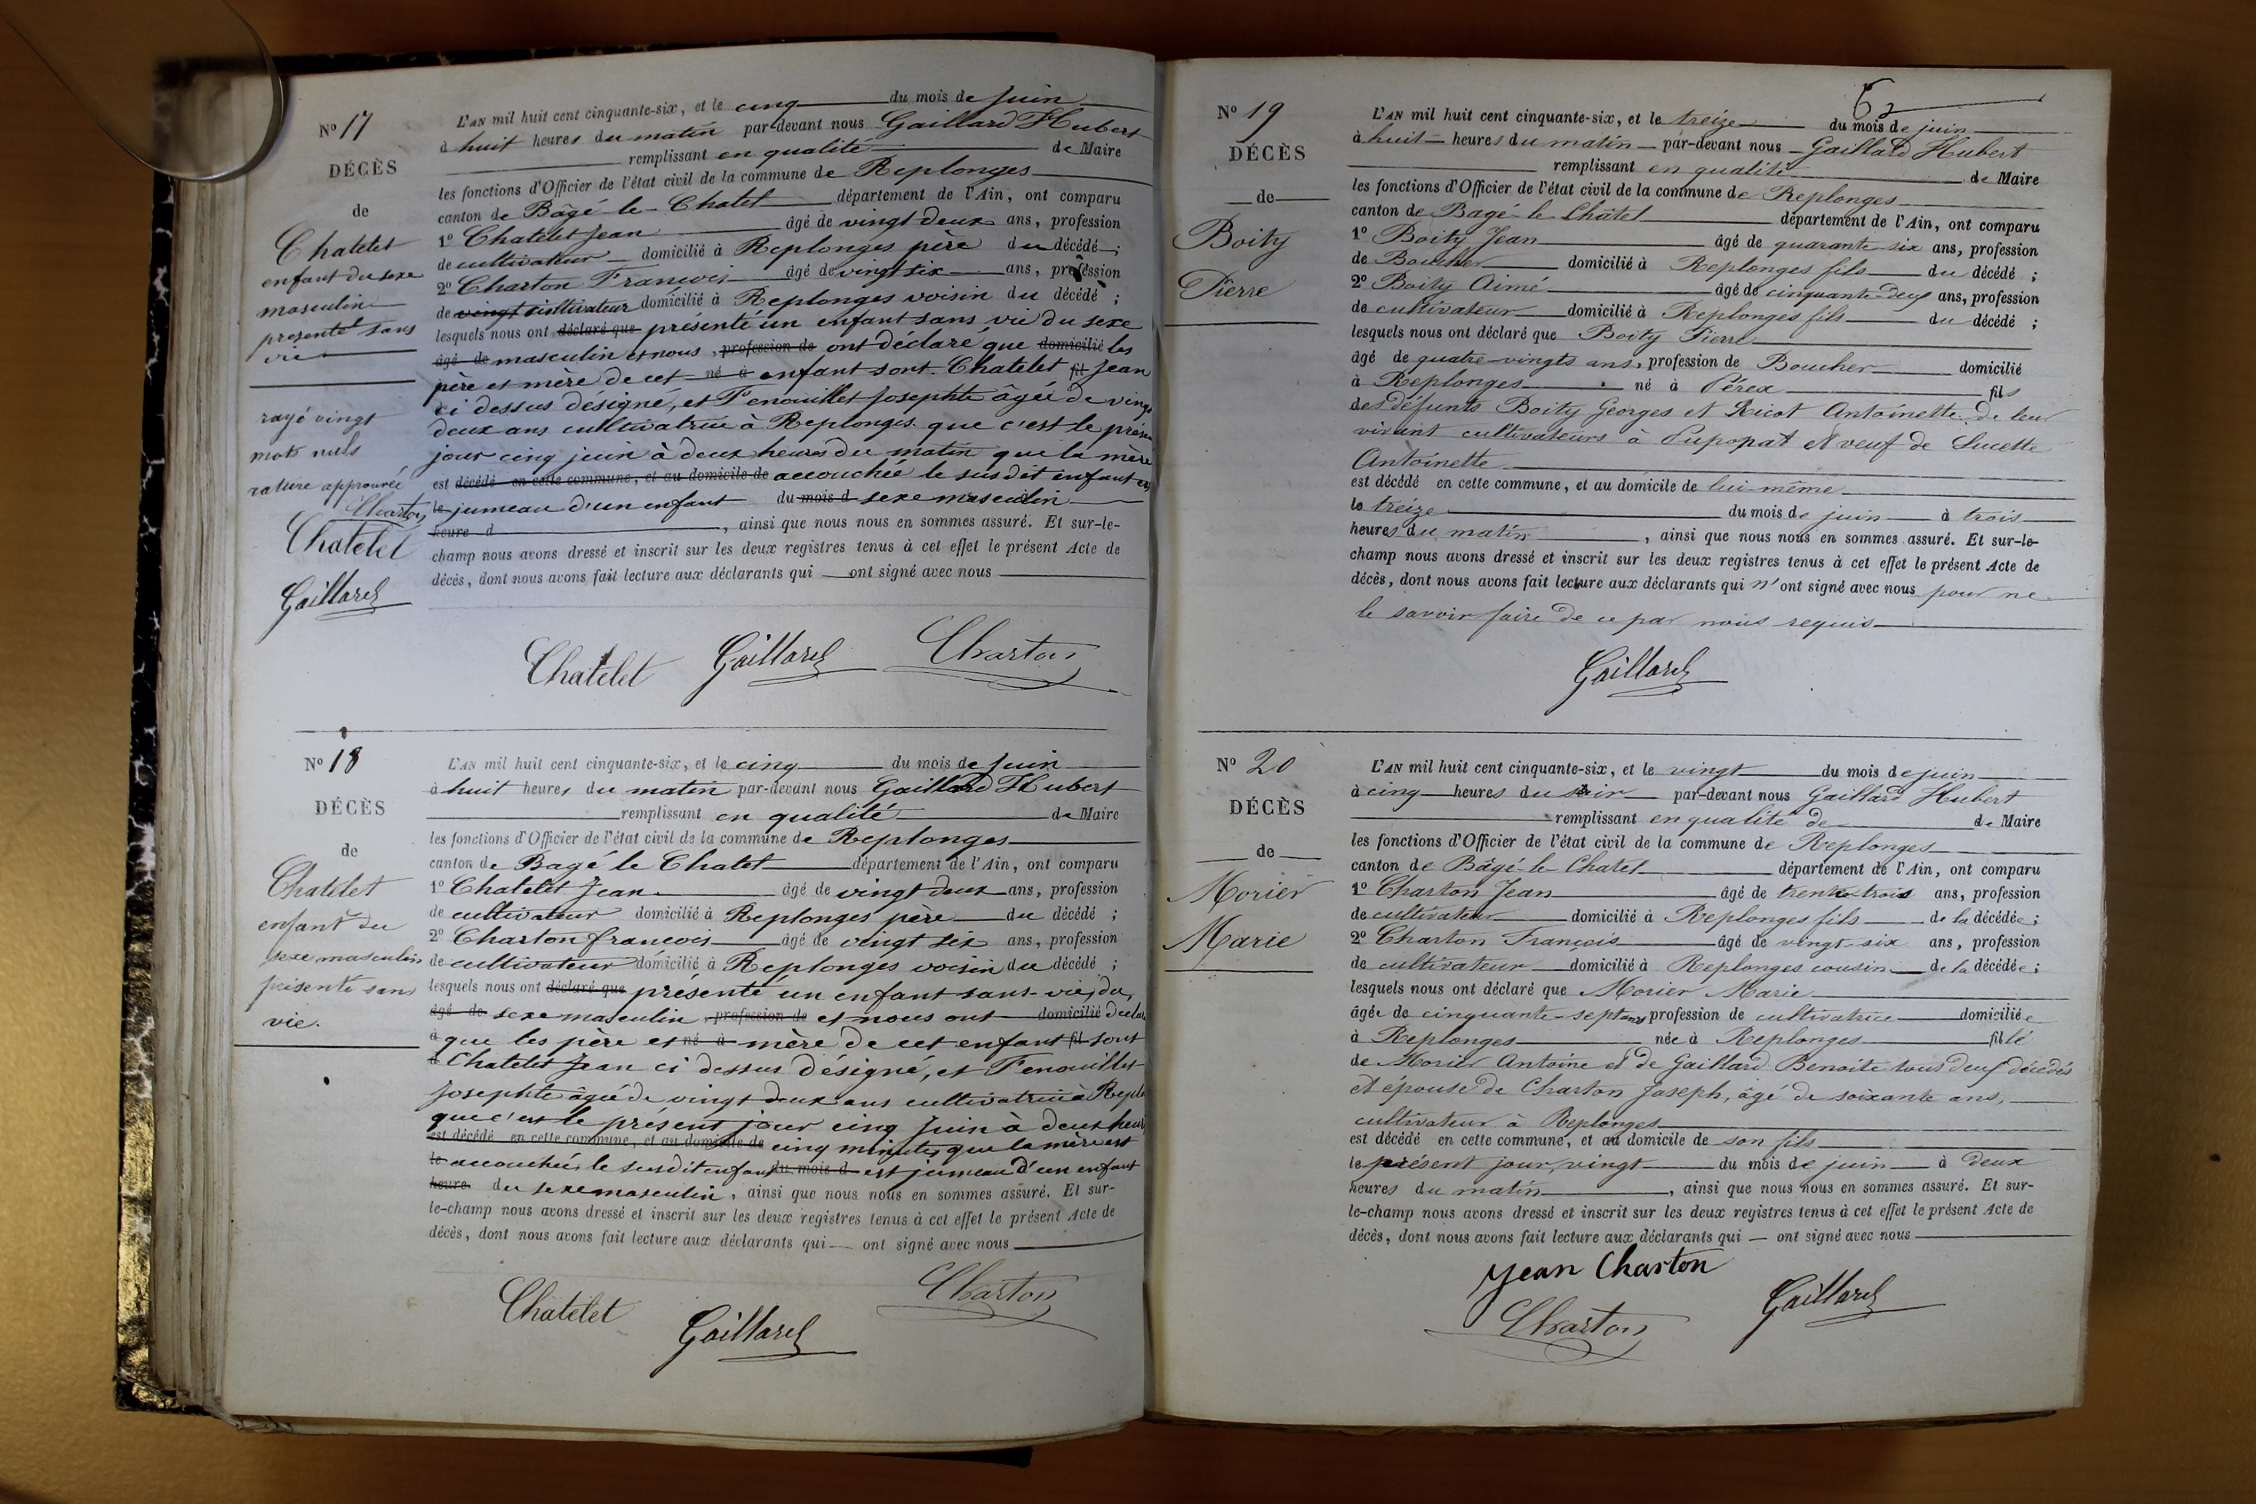 Nº 17
DÉCÈS
de
Chatelet
enfant du sexe
masculin
présenté sans
vie
rayé vingt
mots nuls
rature approuvée
Charton
Chatelet
Gaillard
L'AN mil huit cent cinquante-six, et le cinq du mois de Juin
à huit heures du matin par-devant nous Gaillard Hubert
remplissant en qualité de Maire
les fonctions d'Officier de l'état civil de la commune de Replonges
canton de Bâgé-le-Chatel département de l'Ain, ont comparu
1º Chatelet Jean âgé de vingt deux ans, profession
de cultivateur domicilié à Replonges père du décédé ;
2º Charton Francois âgé de vingt six ans, profession
de vingt cultivateur domicilié à Replonges voisin du décédé ;
lesquels nous ont déclaré que présenté un enfant sans vie du sexe
âgé de masculin et nous profession de ont déclaré que domicilié les
père et mère de cet né à enfant sont Chatelet fil Jean
ci dessus désigné, et Fenouillet Josephte âgée de vingt
deux ans cultivatrice à Replonges que c'est le présent
jour cinq juin à deux heures du matin que la mère
est décédé en cette commune, et au domicile de accouchée le susdit enfant est
le jumeau d'un enfant du mois d sexe masculin
heure d , ainsi que nous nous en sommes assuré. Et sur-le-
champ nous avons dressé et inscrit sur les deux registres tenus à cet effet le présent Acte de
décès, dont nous avons fait lecture aux déclarants qui ont signé avec nous
Chatelet Gaillard Charton
Nº 18
DÉCÈS
de
Chatelet
enfant du
sexe masculin
présenté sans
vie.
L'AN mil huit cent cinquante-six, et le cinq du mois de Juin
à huit heures du matin par-devant nous Gaillard Hubert
remplissant en qualité de Maire
les fonctions d'Officier de l'état civil de la commune de Replonges
canton de Bagé le Chatel département de l'Ain, ont comparu
1º Chatelet Jean âgé de vingt deux ans, profession
de cultivateur domicilié à Replonges père du décédé ;
2º Charton francois âgé de vingt six ans, profession
de cultivateur domicilié à Replonges voisin du décédé ;
lesquels nous ont déclaré que présenté un enfant sans vie, du
âgé de sexe masculin profession de et nous ont domicilié
à que les père et né à mère de cet enfant fil sont
d Chatelet Jean ci dessus désigné, et Fenouillet
Josephte âgée de vingt deux ans cultivatrice à Repl
que c'est le présent jour cinq Juin à deux heur
est décédé en cette commune, et au domicile de cinq minutes que la mère est
le accouchée, le susdit enfant du mois d est jumeau d'un enfant
heure du sexe masculin, ainsi que nous nous en sommes assuré. Et sur-
le-champ nous avons dressé et inscrit sur les deux registres tenus à cet effet le présent Acte de
décès, dont nous avons fait lecture aux déclarants qui ont signé avec nous
Chatelet Gaillard Charton
62
Nº 19
DÉCÈS
de
Boity
Pierre
L'AN mil huit cent cinquante-six, et le treize du mois de juin
à huit heures du matin par-devant nous Gaillard Hubert
remplissant en qualité de Maire
les fonctions d'Officier de l'état civil de la commune de Replonges
canton de Bagé-le Châtel département de l'Ain, ont comparu
1º Boity Jean âgé de quarante six ans, profession
de Boucher domicilié à Replonges fils du décédé ;
2º Boity Aimé âgé de cinquante deux ans, profession
de cultivateur domicilié à Replonges fils du décédé ;
lesquels nous ont déclaré que Boity Pierre
âgé de quatre-vingts ans, profession de Boucher domicilié
à Replonges né à Pérex fils
des défunts Boity Georges et Ricot Antoinette de leur
vivant cultivateurs à et veuf de Lucette
Antoinette
est décédé en cette commune, et au domicile de lui même
le treize du mois de juin à trois
heures du matin, ainsi que nous nous en sommes assuré. Et sur-le-
champ nous avons dressé et inscrit sur les deux registres tenus à cet effet le présent Acte de
décès, dont nous avons fait lecture aux déclarants qui n'ont signé avec nous pour ne
le savoir faire de ce par nous requis
Gaillard
Nº 20
DÉCÈS
de
Morier
Marie
L'AN mil huit cent cinquante-six, et le vingt du mois de juin
à cinq heures du soir par-devant nous Gaillard Hubert
remplissant en qualité de de Maire
les fonctions d'Officier de l'état civil de la commune de Replonges
canton de Bâgé-le Chatel département de l'Ain, ont comparu
1º Charton Jean âgé de trente-trois ans, profession
de cultivateur domicilié à Replonges fils de la décédée ;
2º Charton François âgé de vingt-six ans, profession
de cultivateur domicilié à Replonges cousin de la décédée ;
lesquels nous ont déclaré que Morier Marie
âgée de cinquante-sept ans profession de cultivatrice domiciliée
à Replonges née à Replonges fille
de Morier Antoine et de Gaillard Benoite tous deux décédés
et épouse de Charton Joseph, âgé de soixante ans,
cultivateur à Replonges
est décédé en cette commune, et au domicile de son fils
le présent jour, vingt du mois de juin à deux
heures du matin, ainsi que nous nous en sommes assuré. Et sur-
le-champ nous avons dressé et inscrit sur les deux registres tenus à cet effet le présent Acte de
décès, dont nous avons fait lecture aux déclarants qui ont signé avec nous
Jean Charton
Charton Gaillard